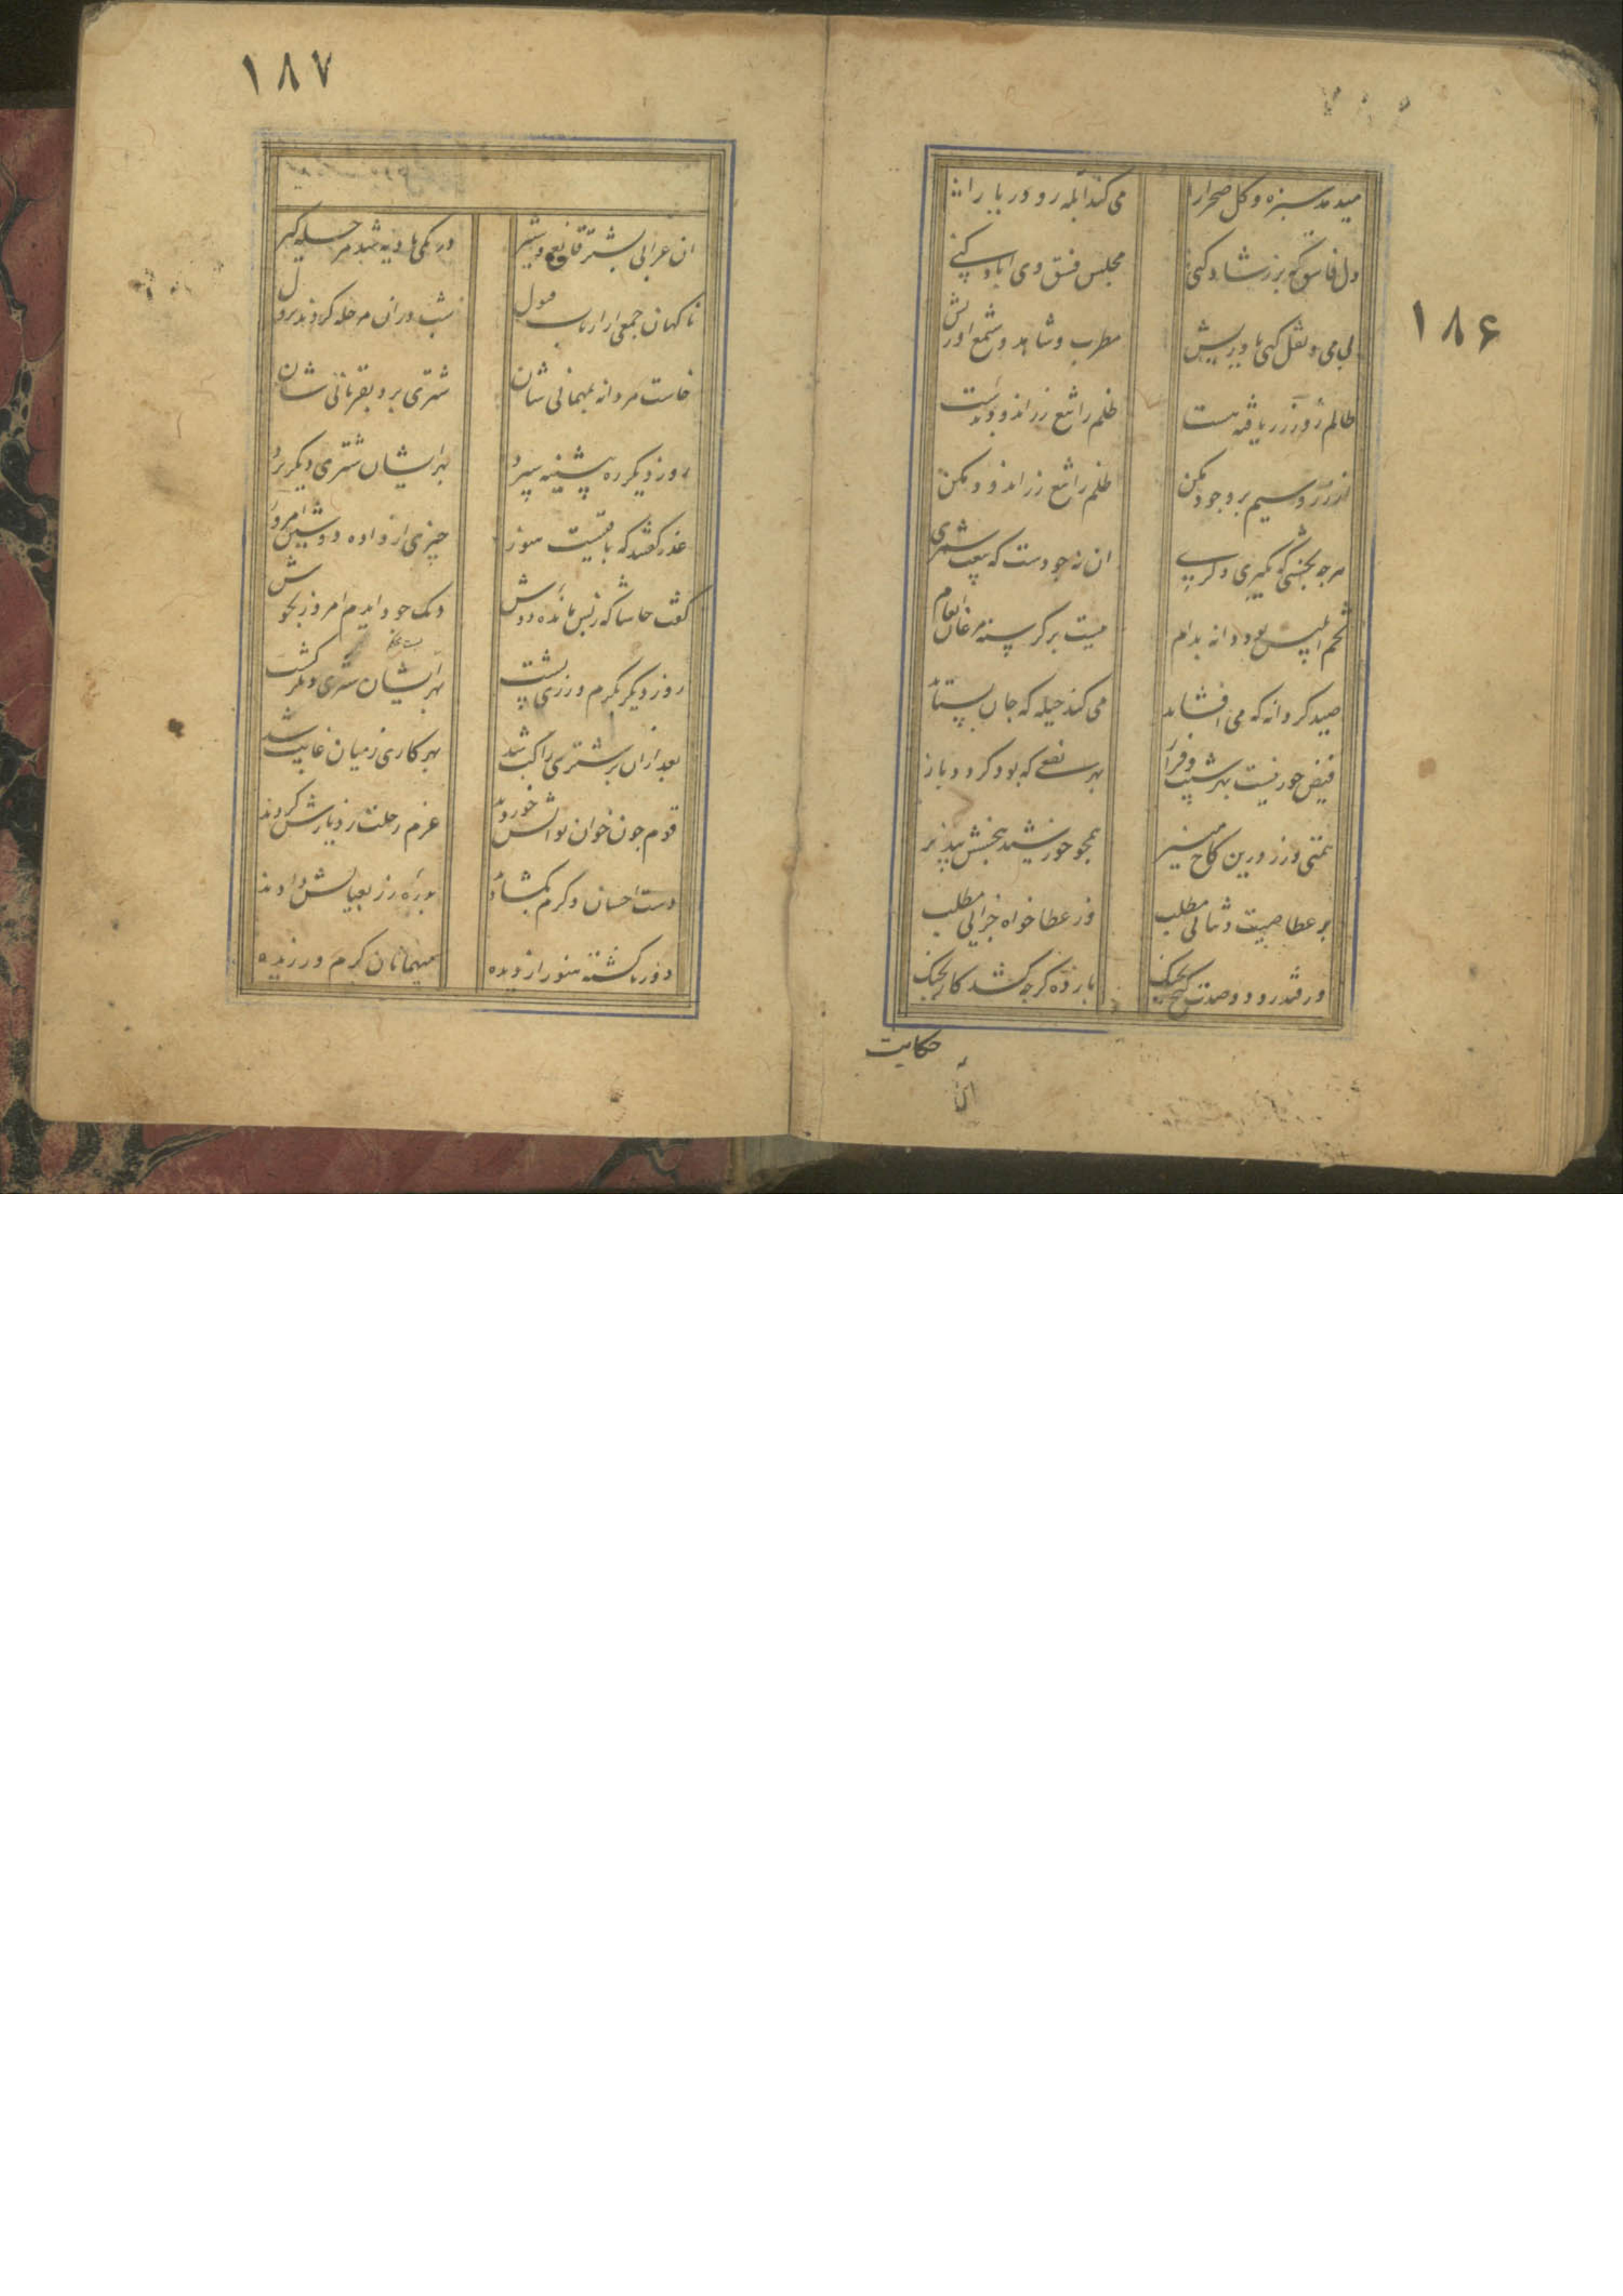 ۱۸۶
میدمد سبزه و گل صحرا را
می کند آبله رو دریا را
دل فاسق که بزر شاد کنی
مجلس فسق وی اباد کنی
بی می و نقل کهی
مطرب و شاهد و شمع اورش
ظالم از زر یافته دست
ظلم را تیغ زر اندود بدست
از زر و سیم بر وجود مکن
ظلم را تیغ زر اندود مکن
هرچه بخشی که بگیری دگری
ان نه جودست که بیع شمری
بود دانه بدام
نیست بر گرسنه مرغان انعام
صید گر دانه که می افشاند
می کند حیله که جان بستاند
فیض خور نیست بهر شیب و فراز
بهر نفعی که بود گردد باز
همتی ورز درین کاخ
همچو خورشید ببخش بپذیر
بر عطا صیت و ثنائی مطلب
وز عطا خواه جزائی مطلب
ور فتد رود و صدت گنج بچنگ
باز ده گرچه کشد کار بچنگ
حکایت
۱۸۷
ان عرابی بشتر قانع و شیر
در یکی بادیه شد مرحله گیر
ناکهان جمعی از ارباب قبول
شب دران مرحله کردند نزول
خاست مردانه بمهمانی شان
شتری برد بقربانی شان
روز دیگر ره پیشینه سپرد
بهر ایشان شتری دیگر برد
عذر گفتند که باقیست هنوز
چیزی از داده دوشین امروز
گفت حاشا که ز پس مانده دوش
دیک جود ایدم امروز بجوش
روز دیگر بکرم ورزی پشت
بهر ایشان شتری دیگر کشت
بعد ازان بر شتری راکب شد
بهر کاری ز میان غایب شد
قوم چون خوان نوالش خوردند
عزم رحلت ز دیارش کردند
دست احسان و کرم بگشادند
بدره زر بعیالش دادند
دور ناگشته هنوز از دیده
میهمانان کرم ورزیده